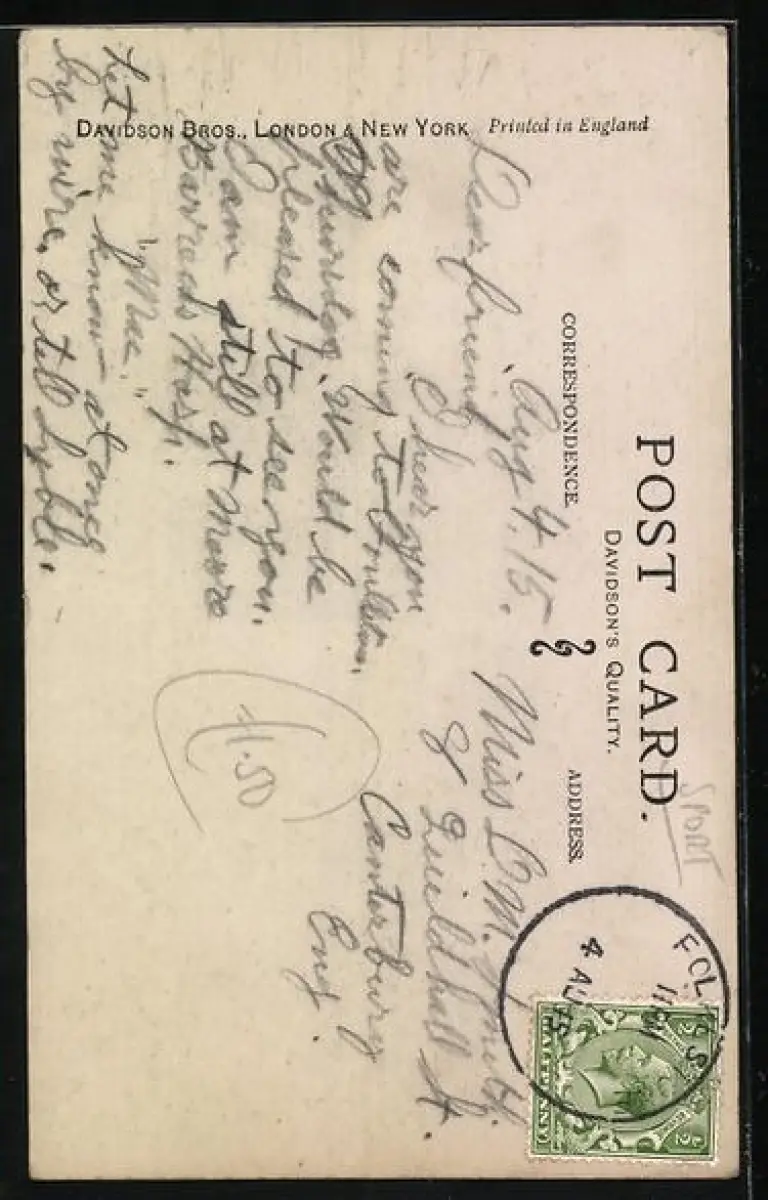 POST CARD.
DAVIDSON'S QUALITY.
CORRESPONDENCE.
ADDRESS.
SPORT
Aug 4. 15.
Dear friend,
I hear you
are coming to
Saturday. Would be
pleased to see you.
I am still at Moore
Barracks Hosp.
"Mac."
Let me know at once
by wire, or tell
Miss D. M. Smith.
8 Guildhall St.
Canterbury
Eng.
11.50
DAVIDSON BROS., LONDON & NEW YORK Printed in England
FOL
4 AU 15
HALFPENNY